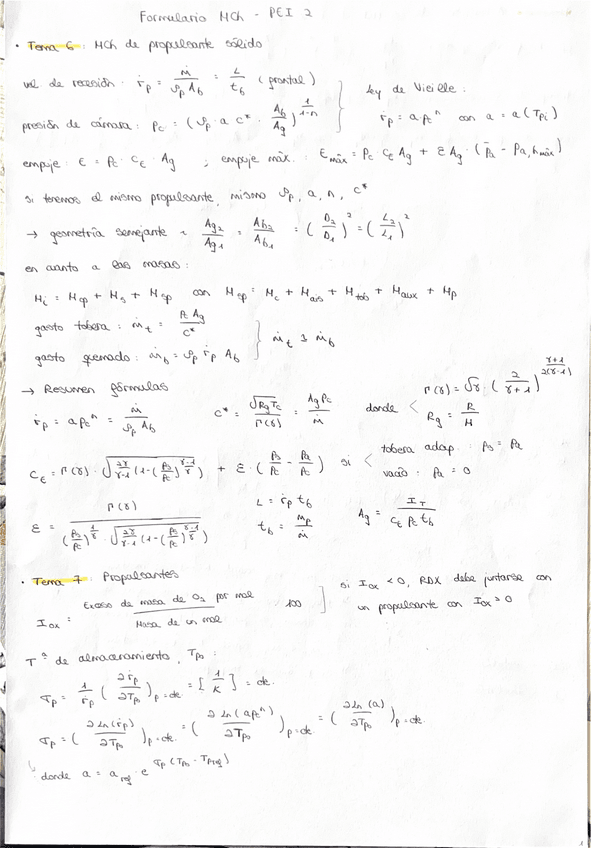 Formulario MCh - PEI 2
· Tema 6: MCh de propulsante sólido
vel de recesión: ṙp = ṁ / (ρp Ab) = L / tb (frontal)
Ley de Vieille:
presión de cámara: pc = (ρp · a c* · Ab/Ag)^(1/(1-n))
ṙp = a pc^n con a = a(Tpi)
empuje: E = pc · CE · Ag ; empuje máx: Emáx = pc CE Ag + ε Ag · (pa - pa,hmáx)
si tenemos el mismo propulsante, mismo ρp, a, n, c*
→ geometría semejante: Ag2/Ag1 = Ab2/Ab1 = (D2/D1)² = (L2/L1)²
en cuanto a las masas:
Mi = Mcp + Ms + Msp con Msp = Mc + Mais + Mtob + Maux + Mp
gasto tobera: ṁt = pc Ag / c*
ṁt = ṁb
gasto quemado: ṁb = ρp ṙp Ab
→ Resumen fórmulas
ṙp = a pc^n = ṁ / (ρp Ab)
c* = √(Rg Tc) / Γ(γ) = Ag pc / ṁ
donde < Γ(γ) = √γ · (2/(γ+1))^((γ+1)/(2(γ-1)))
Rg = R/M
CE = Γ(γ) · √(2γ/(γ-1) (1-(ps/pc)^((γ-1)/γ))) + ε · (ps/pc - pa/pc) si < tobera adap: ps = pa
vacío: pa = 0
ε = Γ(γ) / ((ps/pc)^(1/γ) · √(2γ/(γ-1) (1-(ps/pc)^((γ-1)/γ))))
L = ṙp tb
tb = mp / ṁ
Ag = IT / (CE pc tb)
· Tema 7: Propulsantes
Iox = Exceso de masa de O2 por mol / Masa de un mol · 100
si Iox < 0, RDX debe juntarse con
un propulsante con Iox > 0
Tª de almacenamiento, Tp0:
σp = 1/ṙp (∂ṙp/∂Tp0)p=cte = [1/K] = cte.
σp = (∂ Ln(ṙp)/∂Tp0)p=cte. = (∂ Ln(a pc^n)/∂Tp0)p=cte. = (∂ Ln(a)/∂Tp0)p=cte.
↳ donde a = aref · e^(σp (Tp0 - Tpref))
1